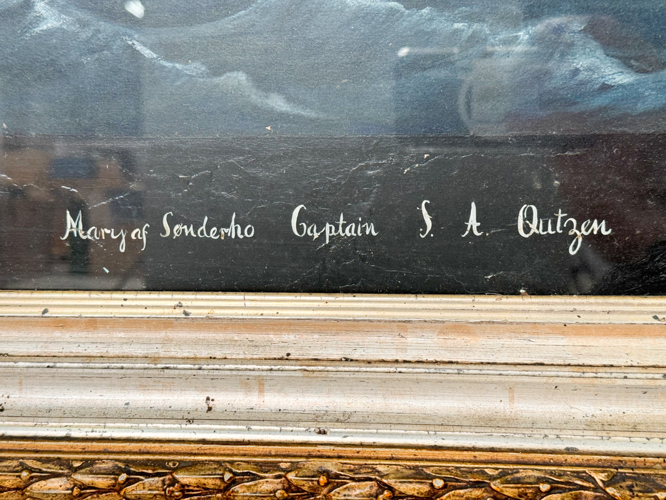 Mary af Sønderho Captain S. A. Qutzen